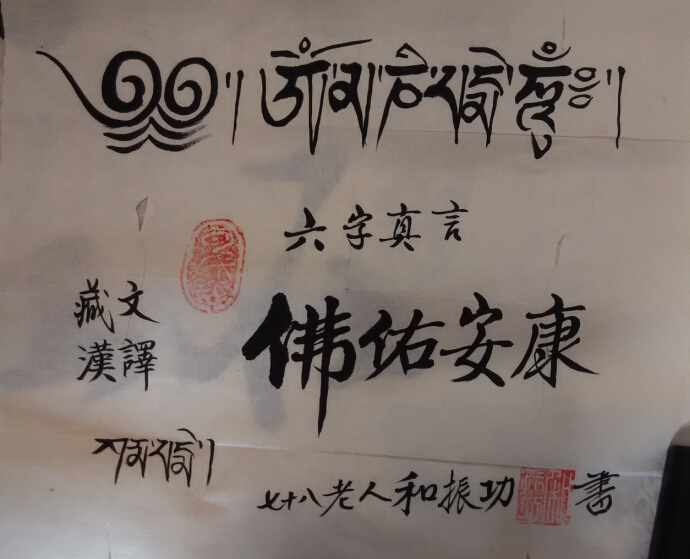 ༄༅། ཨོཾ་མ་ཎི་པདྨེ་ཧཱུྃ༔།
六字真言
藏文
漢譯
佛佑安康
七十八老人和振功書